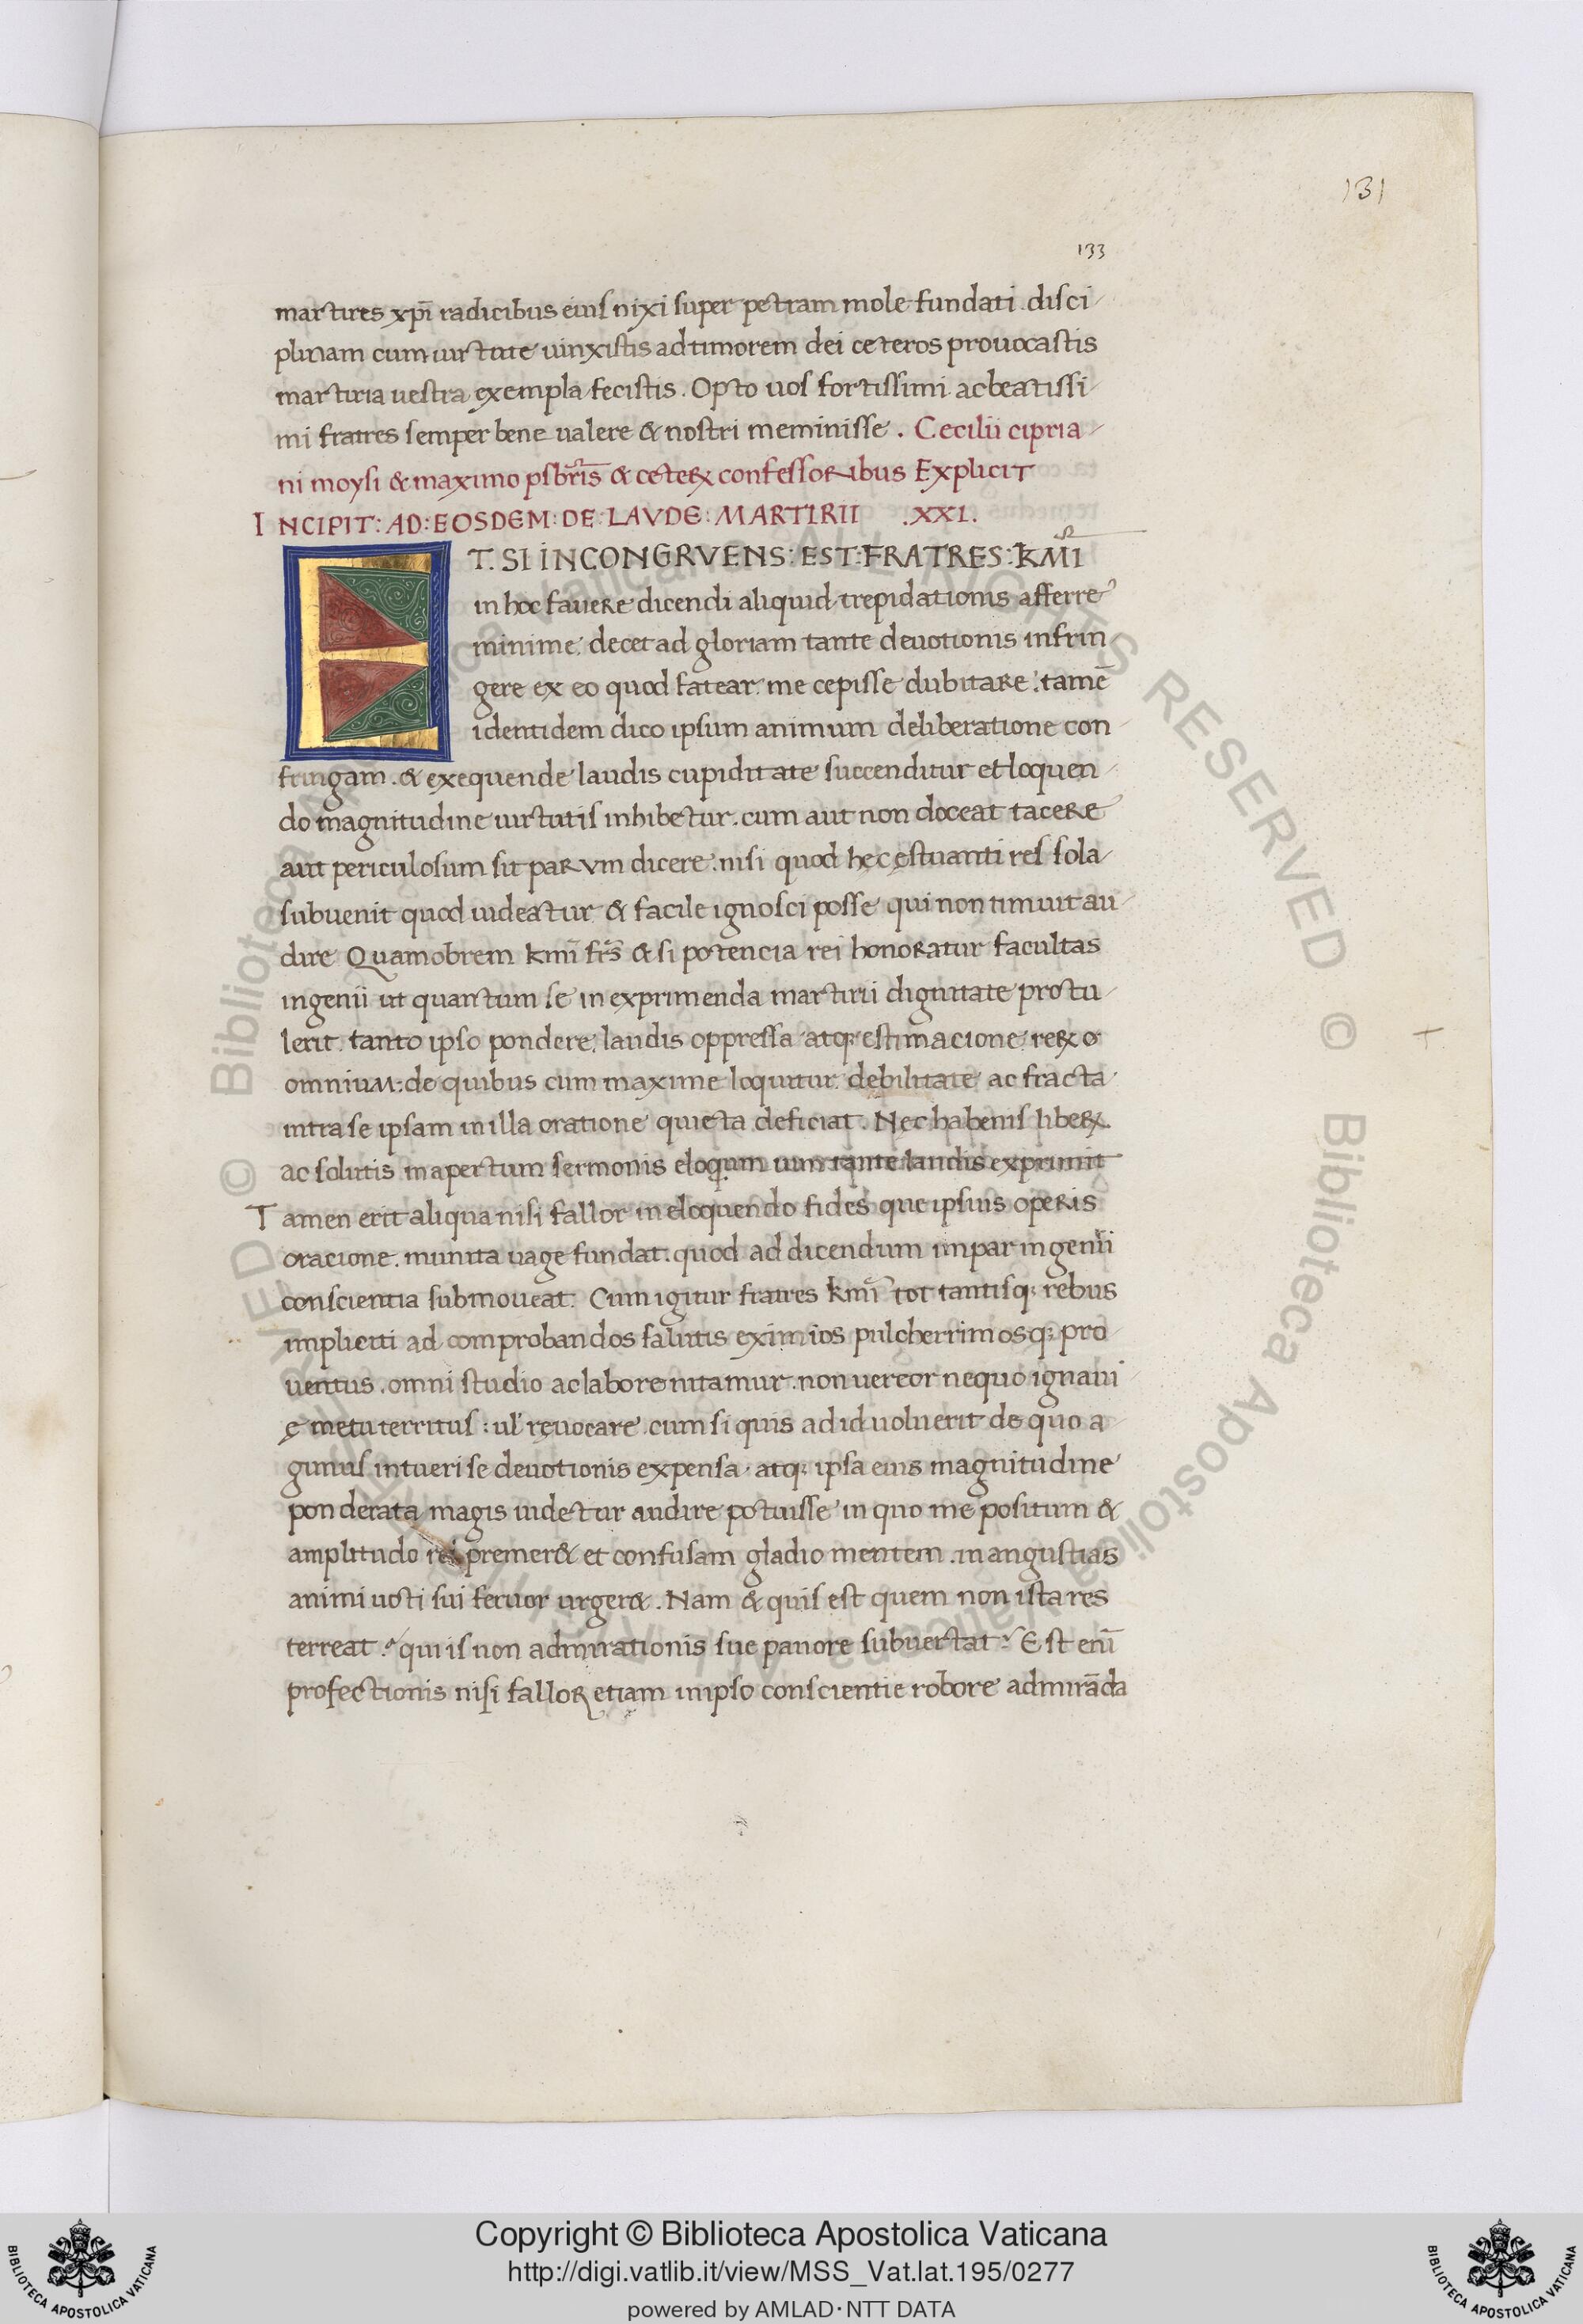 131
133
martires xp̄i radicibus eius nixi super petram mole fundati. disci
plinam cum uirtute uinxistis ad timorem dei ceteros prouocastis
martiria uestra exempla fecistis. Opto uos fortissimi ac beatissi
mi fratres semper bene ualere & nostri meminisse. Cecilii cipria
ni moysi & maximo psbrīs & ceterꝝ confessoribus Explicit
INCIPIT: AD: EOSDEM: DE: LAVDE: MARTIRII .XXI.
ET. SI INCONGRVENS: EST: FRATRES: KMI
in hoc fauere dicendi aliquid trepidationis afferre
minime. decet ad gloriam tante deuotionis infrin
gere ex eo quod fatear. me cepisse dubitare. tamē
identidem dico ipsum animum deliberatione con
fringam. & exequende laudis cupiditate succenditur et loquen
do magnitudine uirtutis inhibetur. cum aut non doceat tacere
aut periculosum sit parvm dicere. nisi quod hec estuanti res sola
subuenit quod uideatur & facile ignosci posse qui non timuit au
dire Quamobrem kmi frs̄ & si potencia rei honoratur facultas
ingenii ut quantum se in exprimenda martirii dignitate protu
lerit. tanto ipso pondere. laudis oppressa atq; estimacione rerꝝ o
omnium: de quibus cum maxime loquitur. debilitate ac fracta
intra se ipsam in illa oratione quieta deficiat. Nec habenis liberꝝ
ac solutis in apertum sermonis eloqum uim tante laudis exprimit
Tamen erit aliqua nisi fallor in eloquendo fides que ipsius operis
oracione. munita uage fundat. quod ad dicendum impar ingenii
conscientia submoueat. Cum igitur fratres kmi tot tantisq; rebus
implicti ad comprobandos salutis eximios pulcherrimosq; pro
uentus. omni studio ac labore nitamur. non uereor nequo ignaui
ę metu territus: ul' reuocare. cum si quis ad id uoluerit de quo a
gimus intueri se deuotionis expensa. atq; ipsa eius magnitudine
ponderata magis uidetur audire potuisse in quo me positum &
amplitudo rei premer& et confusam gladio mentem. in angustias
animi uoti sui feruor urger&. Nam & quis est quem non ista res
terreat? quis non admirationis sue pauore subuertat? Est enī
profectionis nisi fallor etiam in ipso conscientie robore admirāda
© Biblioteca Apostolica Vaticana ALL RIGHTS RESERVED © Biblioteca Apostolica Vaticana ALL RIGHTS RESERVED
Copyright © Biblioteca Apostolica Vaticana
http://digi.vatlib.it/view/MSS_Vat.lat.195/0277
powered by AMLAD·NTT DATA
BIBLIOTECA APOSTOLICA VATICANA
BIBLIOTECA APOSTOLICA VATICANA